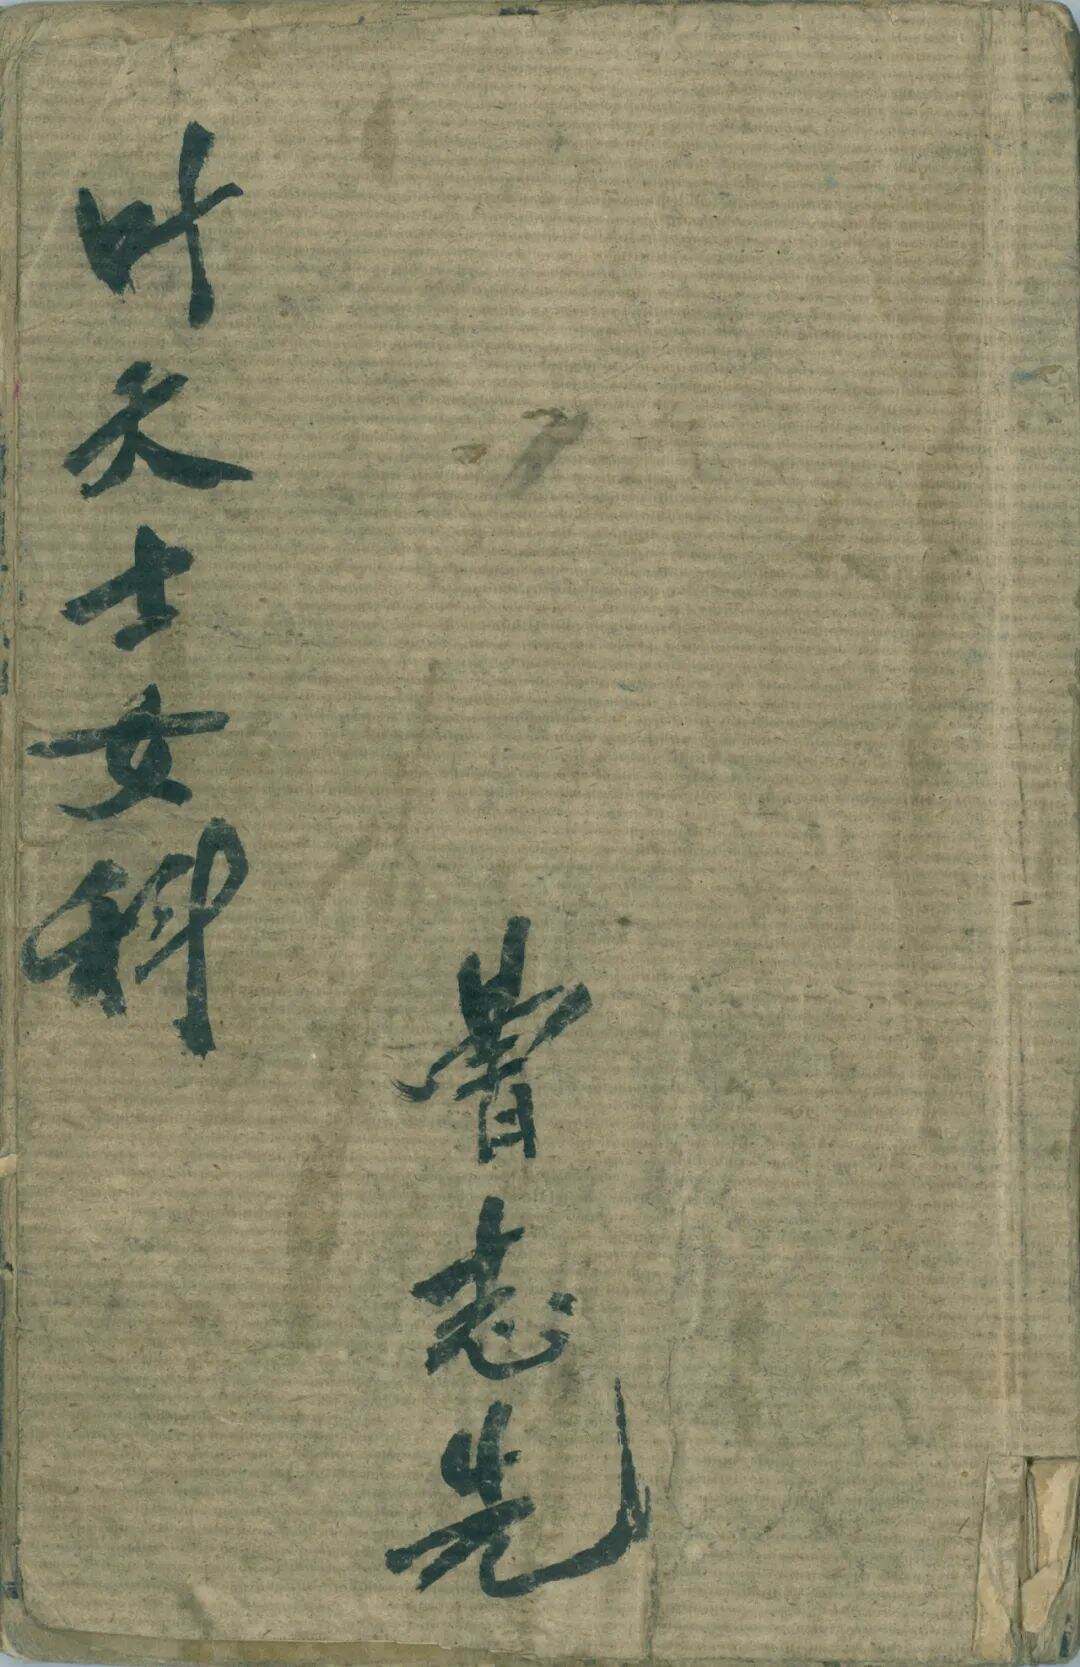 曾志先
叶天士女科